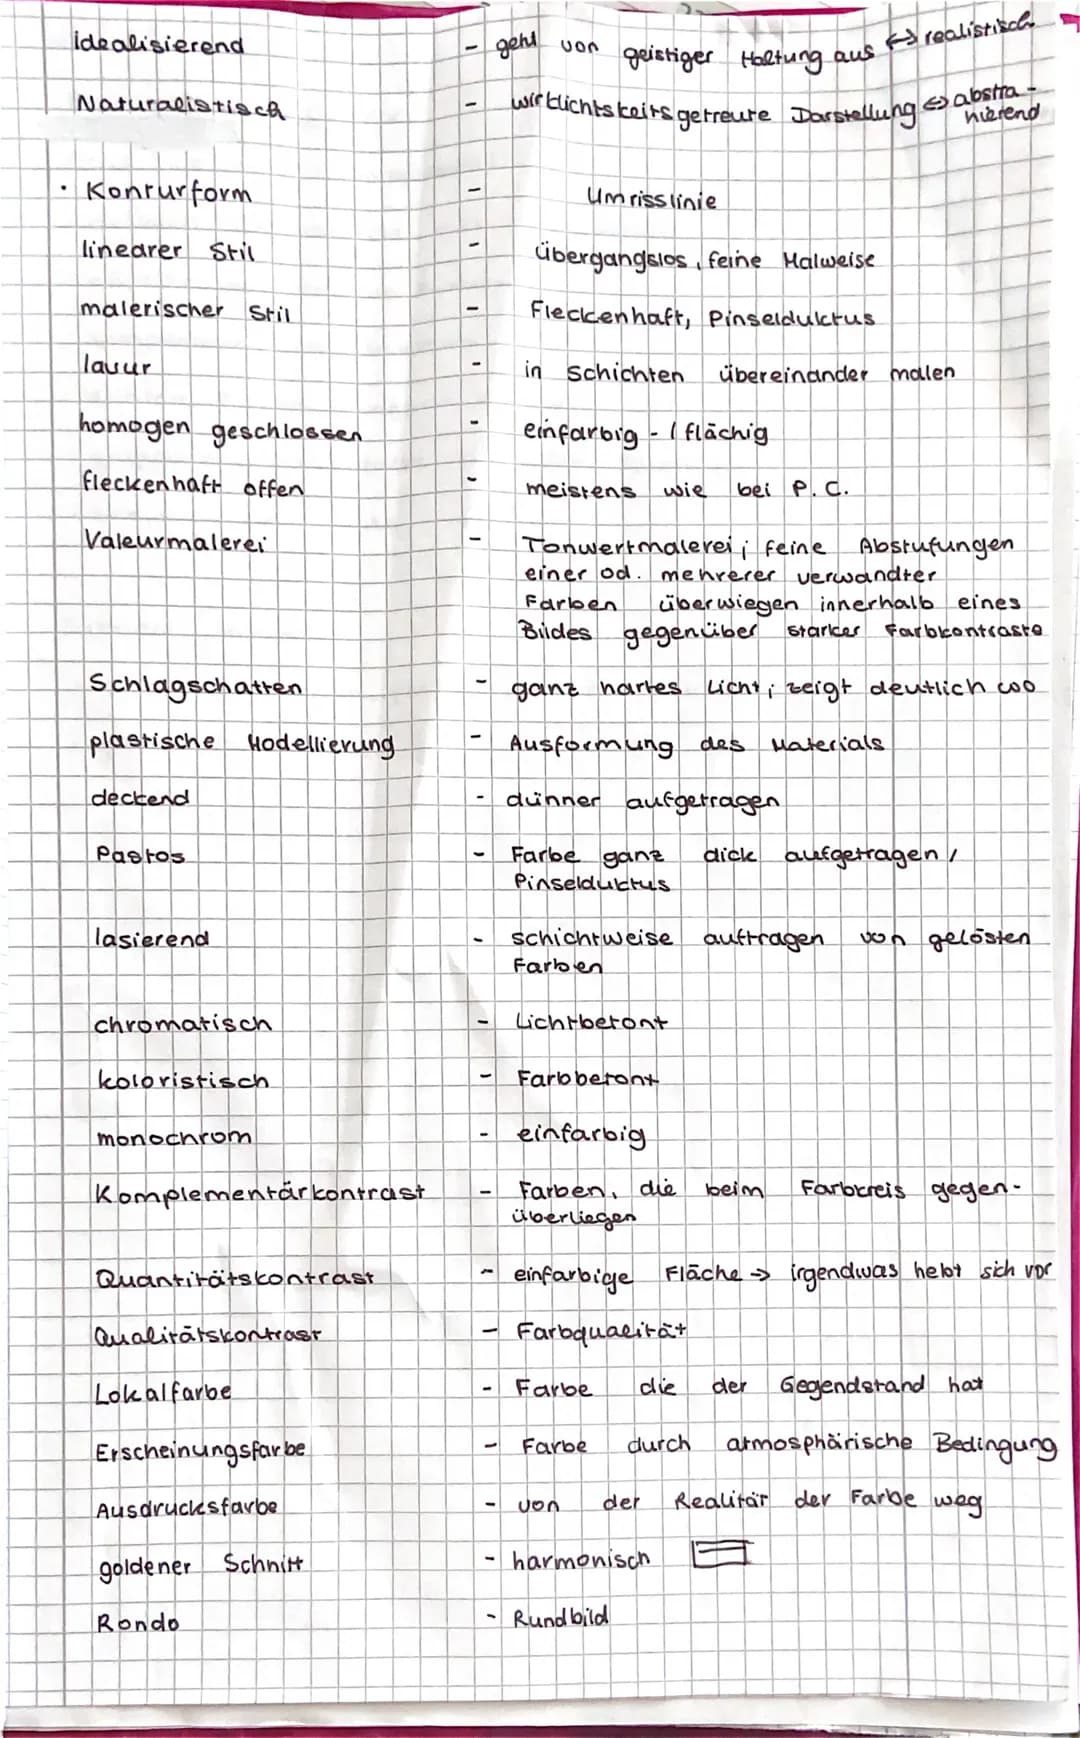 idealisierend - geht von geistiger Haltung aus ↔ realistisch
Naturalistisch - wirklichtskeitsgetreute Darstellung ⇔ abstra-
hierend
· Konturform - Umrisslinie
linearer Stil - übergangslos, feine Malweise
malerischer Stil - Fleckenhaft, Pinselduktus
lasur - in schichten übereinander malen
homogen geschlossen - einfarbig - / flächig
fleckenhaft offen - meistens wie bei P. C.
Valeurmalerei - Tonwertmalerei; feine Abstufungen
einer od. mehrerer verwandter
Farben überwiegen innerhalb eines
Bildes gegenüber starker Farbkontraste
Schlagschatten - ganz hartes Licht; zeigt deutlich wo
plastische Modellierung - Ausformung des Materials
deckend - dünner aufgetragen
Pastos - Farbe ganz dick aufgetragen /
Pinselduktus
lasierend - schichtweise auftragen von gelösten
Farben
chromatisch - Lichtbetont
koloristisch - Farbbetont
monochrom - einfarbig
Komplementärkontrast - Farben, die beim Farbkreis gegen-
überliegen
Quantitätskontrast - einfarbige Fläche → irgendwas hebt sich vor
Qualitätskontrast - Farbqualität
Lokalfarbe - Farbe die der Gegendstand hat
Erscheinungsfarbe - Farbe durch atmosphärische Bedingung
Ausdrucksfarbe - von der Realität der Farbe weg
goldener Schnitt - harmonisch
Rondo - Rundbild